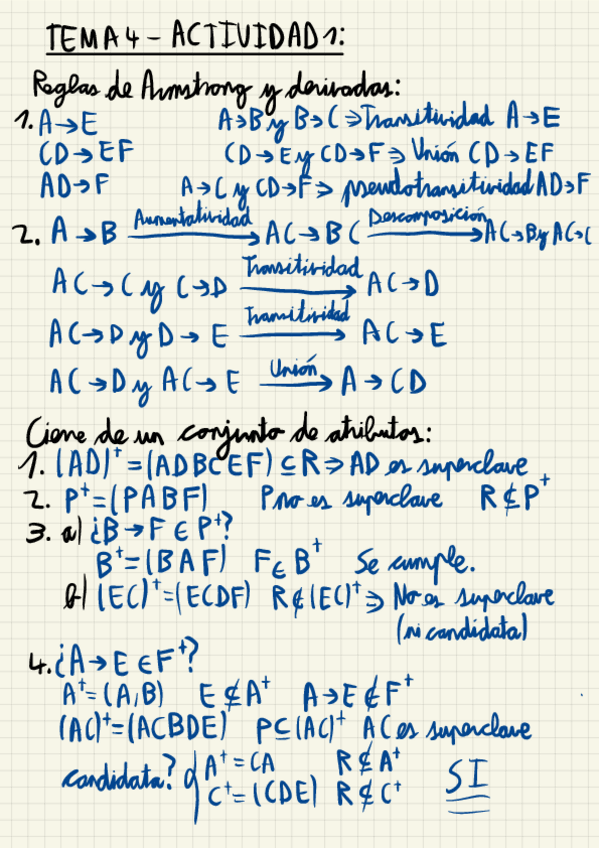 TEMA 4 - ACTIVIDAD 1:
Reglas de Armstrong y derivadas:
1. A→E A→B y B→C ⇒ Transitividad A→E
CD→EF CD→E y CD→F ⇒ Unión CD→EF
AD→F A→C y CD→F ⇒ pseudotransitividad AD→F
2. A→B Aumentatividad AC→BC Descomposición AC→B y AC→C
AC→C y C→D Transitividad AC→D
AC→D y D→E Transitividad AC→E
AC→D y AC→E Unión A→CD
Cierre de un conjunto de atributos:
1. (AD)⁺=(ADBCEF)⊆R⇒AD es superclave
2. P⁺=(PABF) P no es superclave R⊄P⁺
3. a) ¿B→F∈P⁺?
B⁺=(BAF) F∈B⁺ Se cumple.
b) (EC)⁺=(ECDF) R⊄(EC)⁺⇒ No es superclave
(ni candidata)
4. ¿A→E∈F⁺?
A⁺=(A,B) E∉A⁺ A→E∉F⁺
(AC)⁺=(ACBDE) P⊆(AC)⁺ AC es superclave
candidata? A⁺=CA R⊄A⁺
C⁺=(CDE) R⊄C⁺ SI